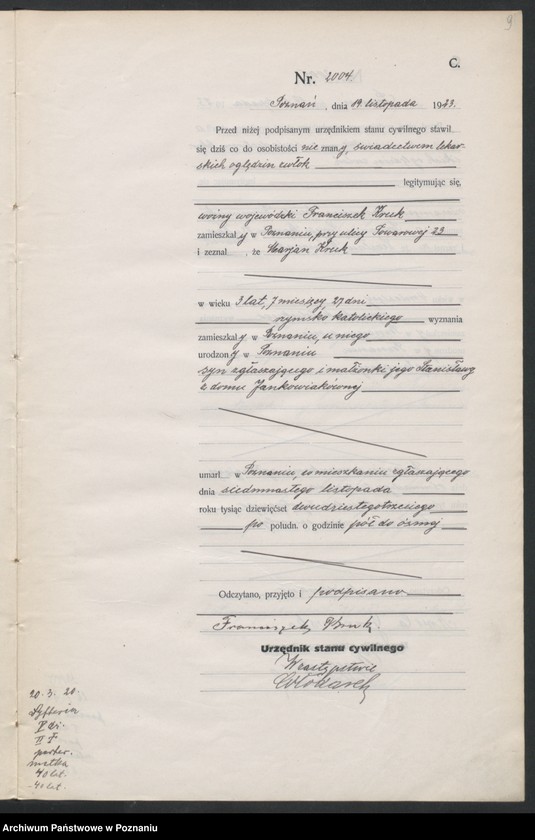 9
C.
Nr. 2004.
Poznań, dnia 19. listopada 1923.
Przed niżej podpisanym urzędnikiem stanu cywilnego stawił
się dziś co do osobistości nie znany, świadectwem lekar-
skich oględzin zwłok
legitymując się,
woźny wojewódzki Franciszek Kruk
zamieszkały w Poznaniu, przy ulicy Towarowej 23
i zeznał, że Marjan Kruk
w wieku 3 lat, 7 miesięcy 27 dni
rzymsko katolickiego wyznania
zamieszkały w Poznaniu, u niego
urodzony w Poznaniu
syn zgłaszającego i małżonki jego Stanisławy
z domu Jankowiakównej
umarł w Poznaniu, w mieszkaniu zgłaszającego
dnia siedmnastego listopada
roku tysiąc dziewięćset dwudziestegotrzeciego
po połudn. o godzinie pół do ósmej
Odczytano, przyjęto i podpisano
Franciszek Kruk
Urzędnik stanu cywilnego
W zastępstwie
20. 3. 20.
Dyfteria
II F
parter.
matka
40 lat.
40 lat.
Archiwum Państwowe w Poznaniu